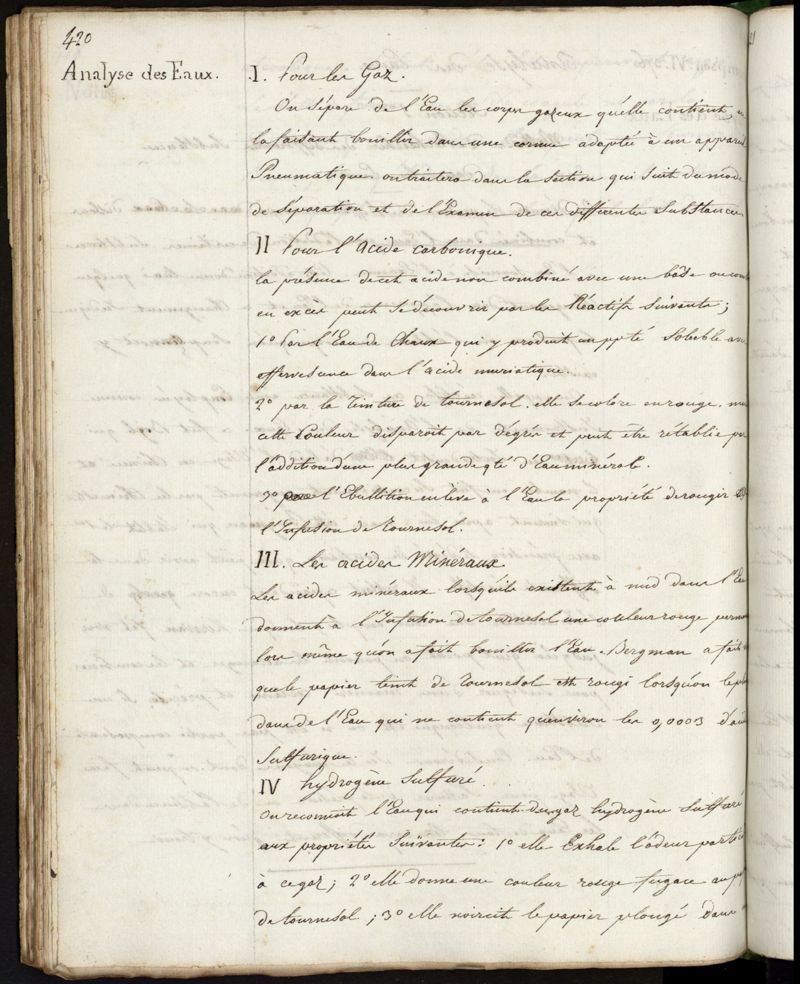 420
Analyse des Eaux.
I. Pour les Gaz.
On Sépare de l'Eau les corps gazeux qu'elle contient en
la faisant bouillir dans une cornue adaptée à un appareil
Pneumatique. on traitera dans la Section qui Suit du mode
de Séparation et de l'Examen de ces differentes Substances
II Pour l'Acide carbonique.
la présence de cet acide non combiné avec une bâse ou
en excès peut Se découvrir par les Réactifs Suivants;
1º Par l'Eau de Chaux qui y produit un ppté Soluble avec
effervescence dans l'acide muriatique.
2º par la Teinture de tournesol. elle Se colore en rouge.
cette Couleur disparoit par dégrés et peut etre rétablie par
l'addition d'une plus grande qté d'Eau minérale.
3º l'Ebullition enlève à l'Eau la propriété de rougir
l'Infusion de Tournesol.
III. Les acides Minéraux
Les acides minéraux lorsqu'ils existent à nud dans l'Eau
donnent à l'Infusion de tournesol une couleur rouge
lors même qu'on a fait bouillir l'Eau. Bergman a fait
que le papier teint de Tournesol est rougi lorsqu'on le
dans de l'Eau qui ne contient qu'environ les 0,0003 d'acide
Sulfurique.
IV hydrogène Sulfuré.
on reconnoit l'Eau qui contient du gaz hydrogène Sulfuré
aux propriétés Suivantes: 1º elle Exhale l'odeur
à ce gaz; 2º elle donne une couleur rouge fugace au
de tournesol; 3º elle noircit le papier plongé dans